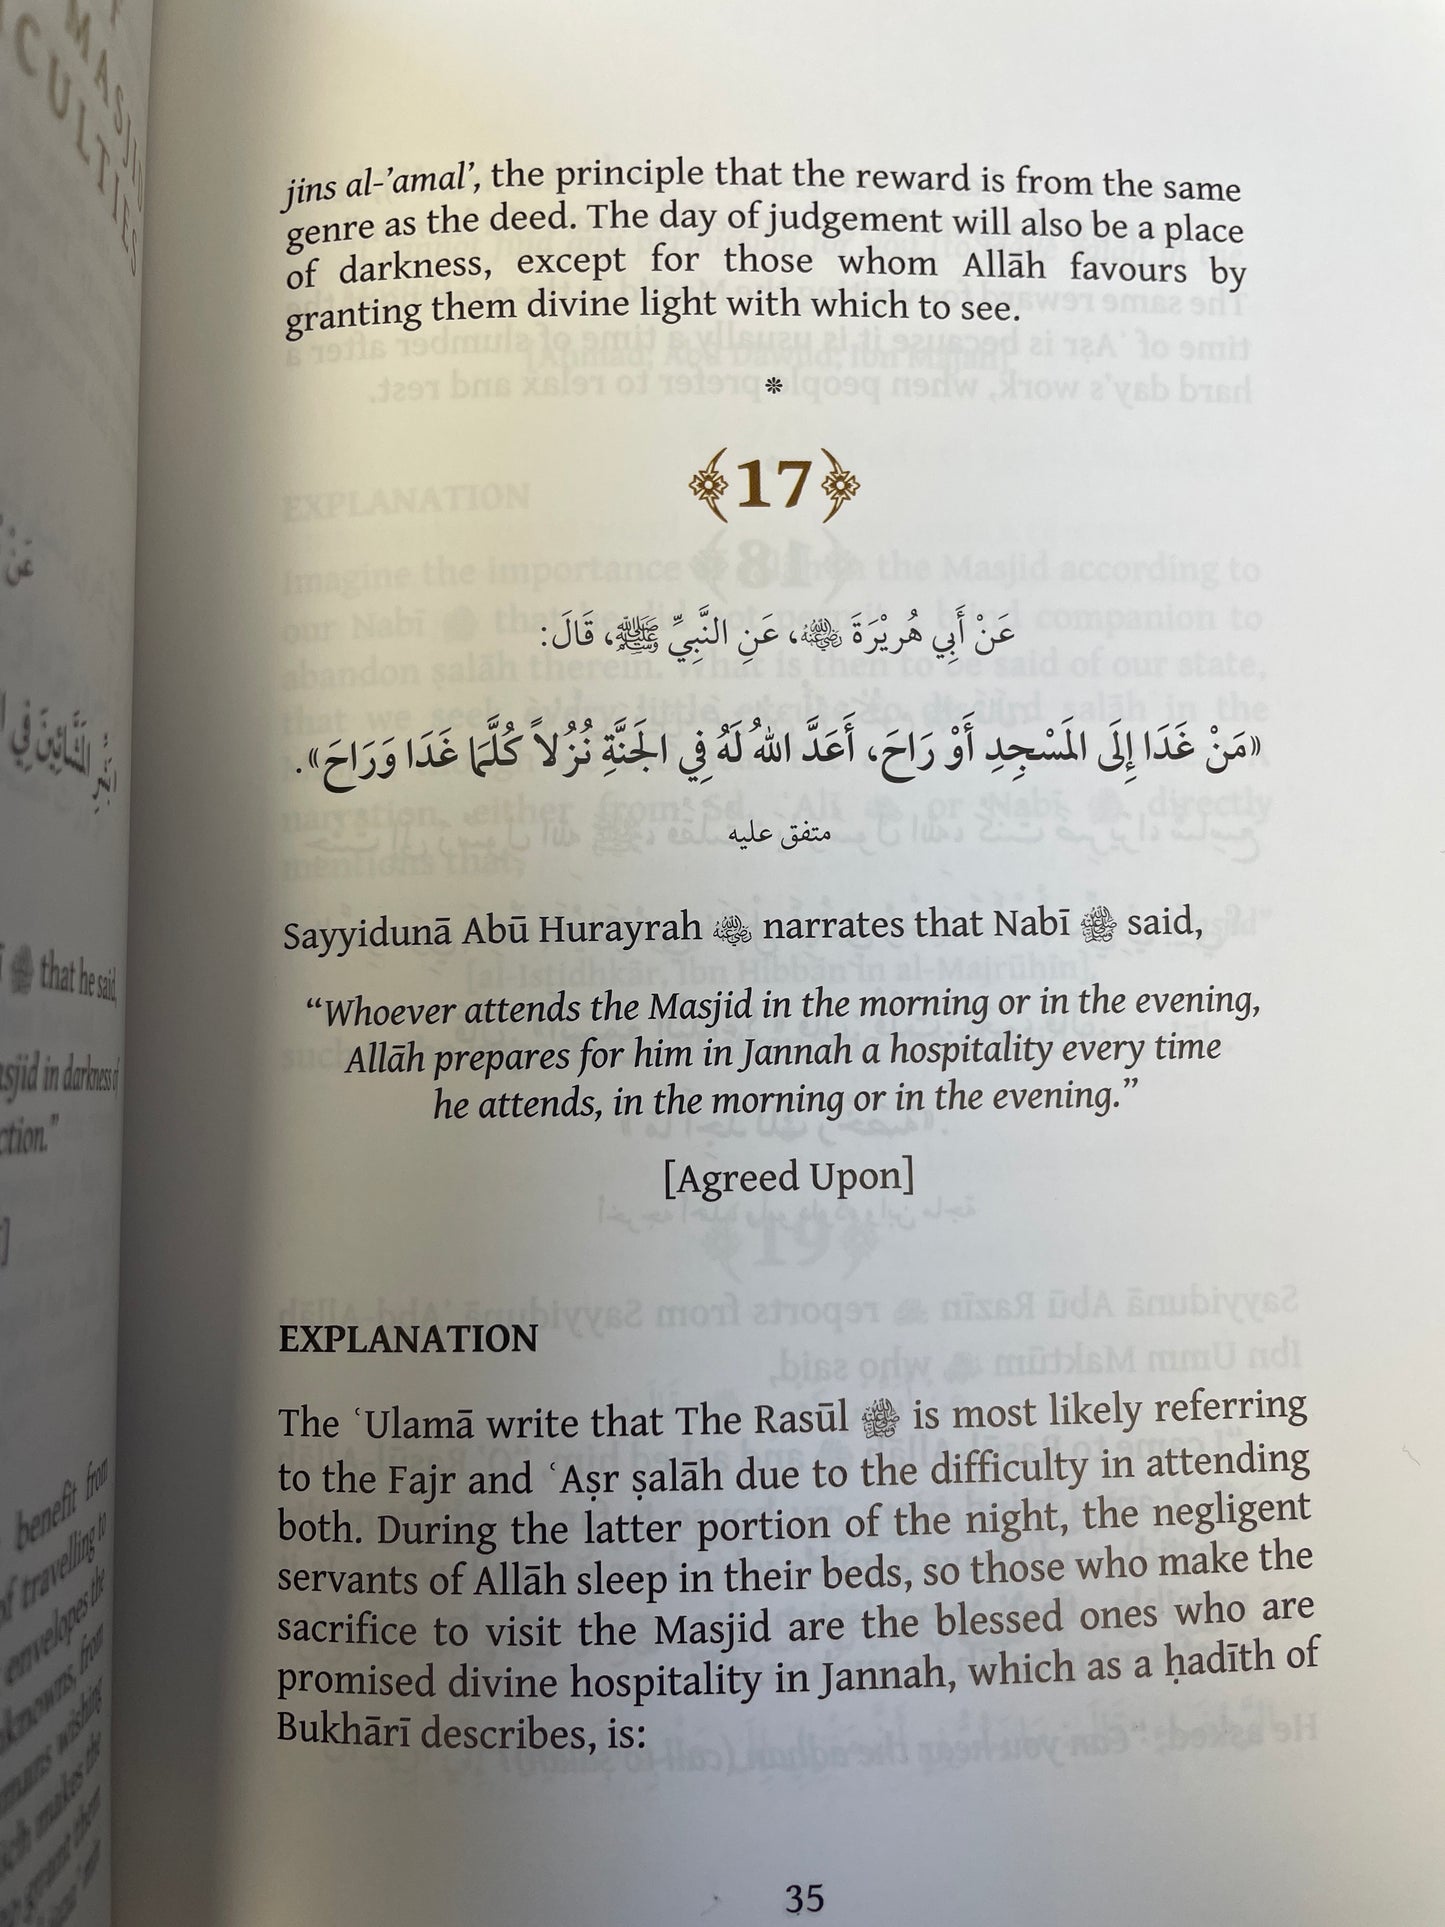 MASJID
CULTIES
jins al-’amal’, the principle that the reward is from the same
genre as the deed. The day of judgement will also be a place
of darkness, except for those whom Allāh favours by
granting them divine light with which to see.
17
عَنْ أَبِي هُرِيْرَةَ رضي الله عنه، عَنِ النَّبِيِّ ﷺ، قَالَ:
«مَنْ غَدَا إِلَى المَسْجِدِ أَوْ رَاحَ، أَعَدَّ اللهُ لَهُ فِي الجَنَّةِ نُزُلاً كُلَّمَا غَدَا وَرَاحَ».
متفق عليه
Sayyidunā Abū Hurayrah رضي الله عنه narrates that Nabī ﷺ said,
“Whoever attends the Masjid in the morning or in the evening,
Allāh prepares for him in Jannah a hospitality every time
he attends, in the morning or in the evening.”
[Agreed Upon]
EXPLANATION
The ʿUlamā write that The Rasūl ﷺ is most likely referring
to the Fajr and ʿAṣr ṣalāh due to the difficulty in attending
both. During the latter portion of the night, the negligent
servants of Allāh sleep in their beds, so those who make the
sacrifice to visit the Masjid are the blessed ones who are
promised divine hospitality in Jannah, which as a ḥadīth of
Bukhārī describes, is:
35
that he said,
in darkness of
benefit from
of travelling to
envelopes the